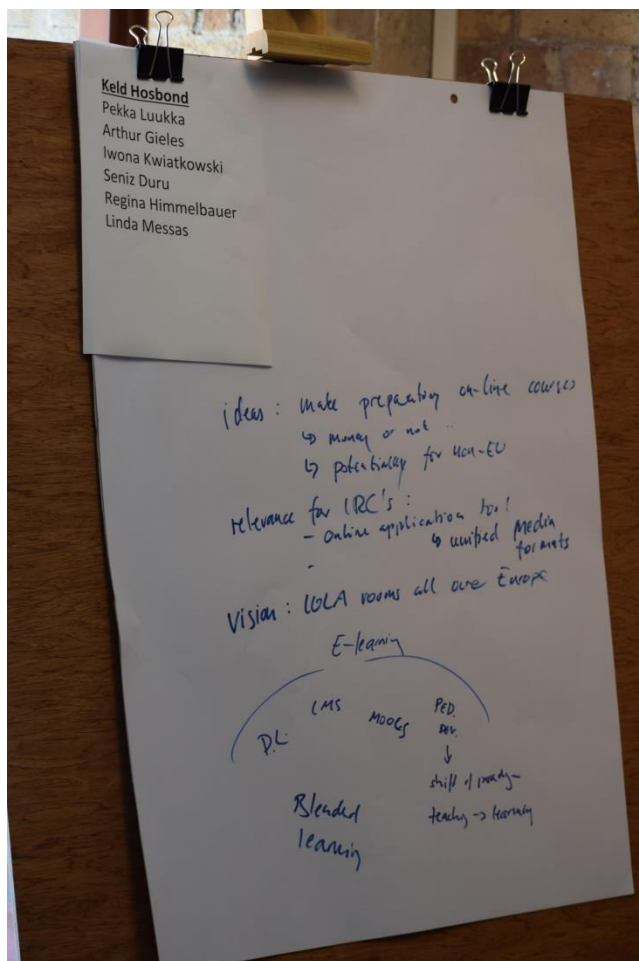 Keld Hosbond
Pekka Luukka
Arthur Gieles
Iwona Kwiatkowski
Seniz Duru
Regina Himmelbauer
Linda Messas
ideas : make preparatory on-line courses
↳ money or not ..
↳ potentially for non-EU
relevance for IRC's :
- online application tool
↳ unified media
formats
-
Vision : LOLA rooms all over Europe
E-learning
D.L.
LMS
MOOCs
PED.
DEV.
↓
shift of
teaching -> learning
Blended
learning